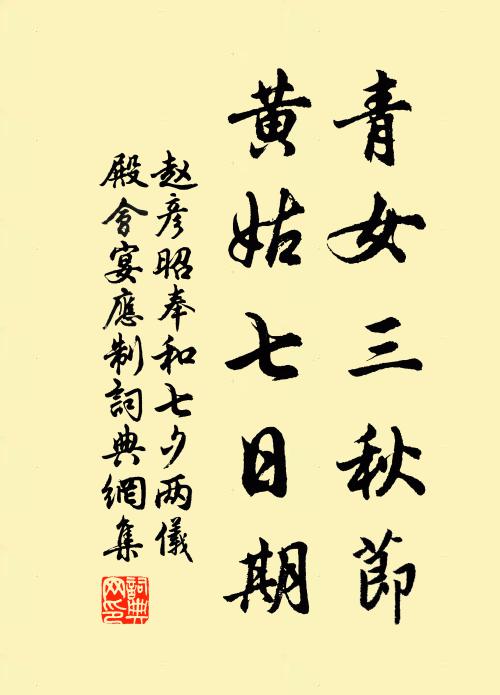 青女三秋節
黃姑七日期
赵彦昭奉和七夕两儀
殿會宴應制詞典網集
詞典网印